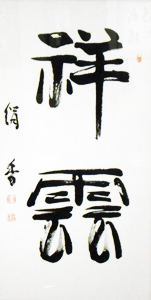 祥雲
絹香